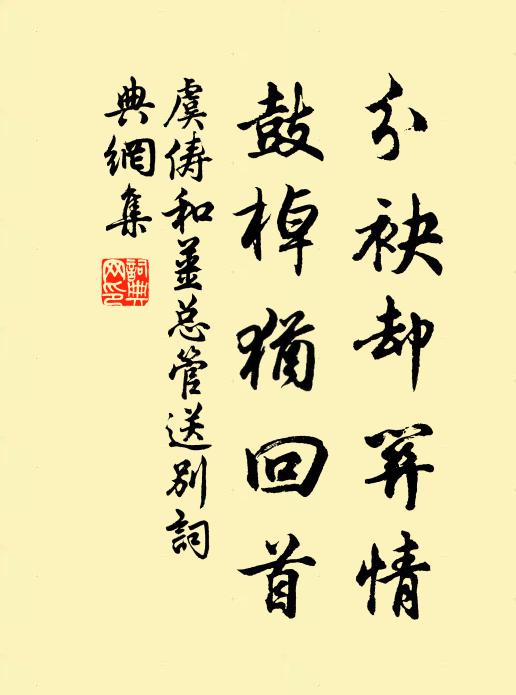 分袂却关情
鼓棹犹回首
虞俦和姜总管送别词
典网集
词典网印